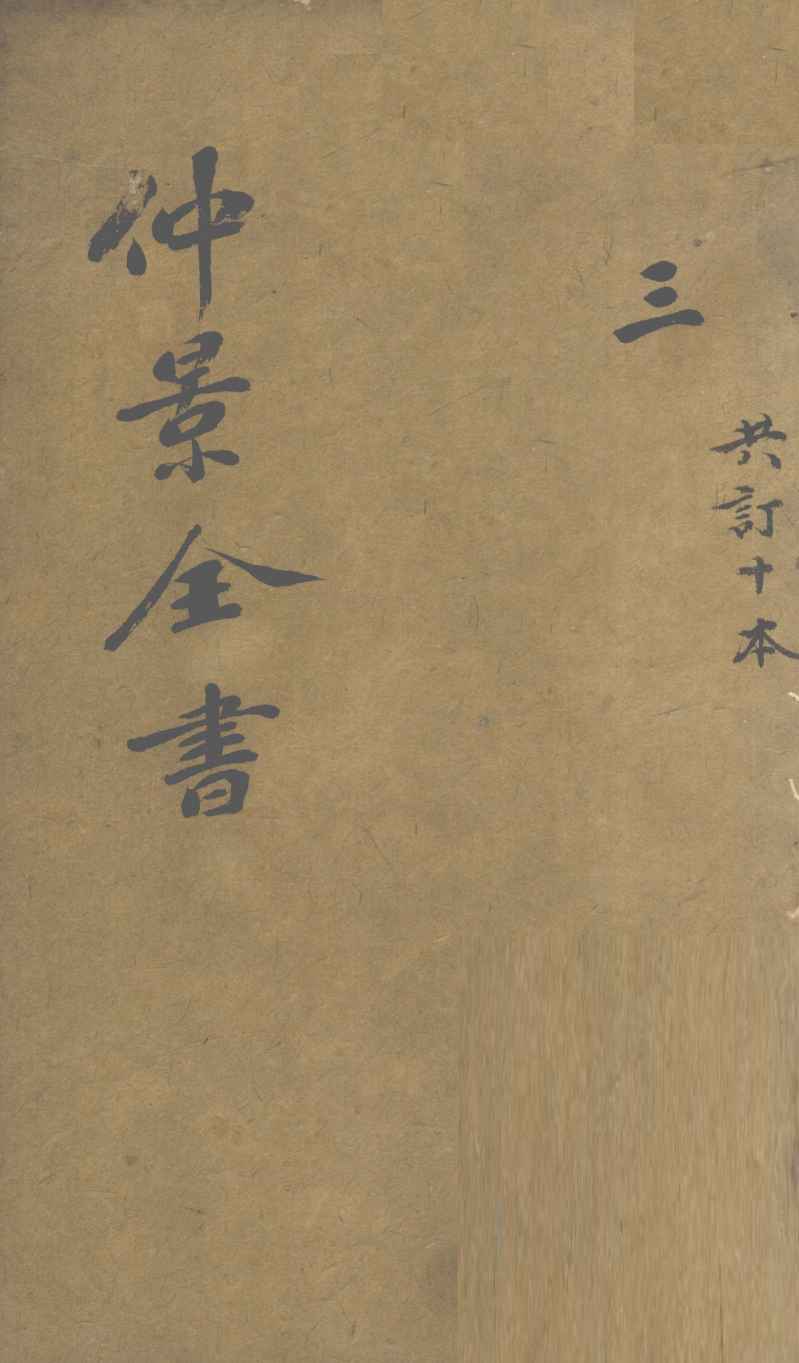 共訂十本
三
仲景全書